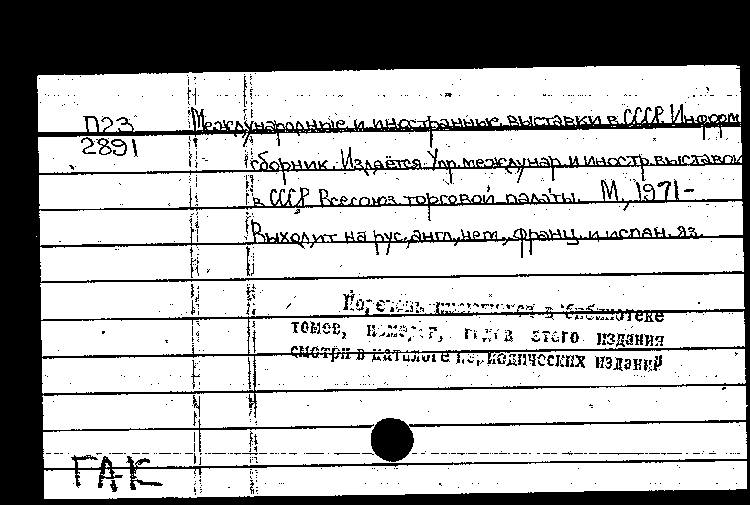 П23 Международные и иностранные выставки в СССР. Информ.
2891
сборник. Издаётся Упр. междунар. и иностр. выставок
в СССР Всесоюз. торговой палаты. М., 1971-
Выходит на рус., англ., нем., франц. и испан. яз.
Перечень имеющихся в библиотеке
томов, номеров, годов этого издания
смотри в каталоге периодических изданий
ГАК